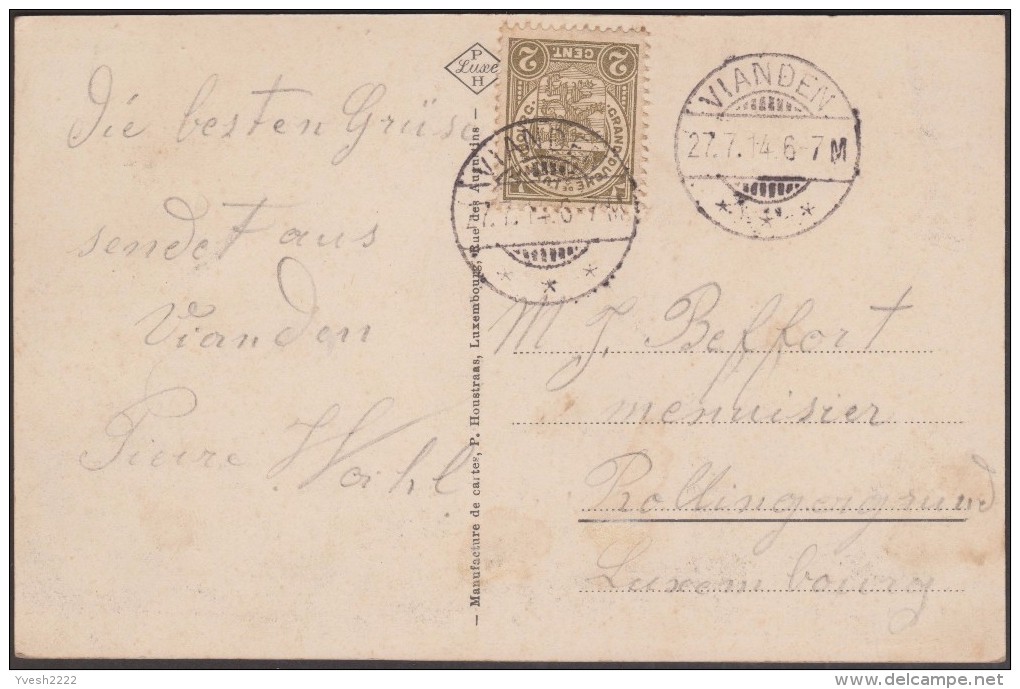 Die besten Grüse
sendet aus
Vianden
Pierre Wahl
P
Luxe
H
— Manufacture de cartes, P. Houstraas, Luxembourg, Rue des Augustins —
2 CENT. 2
GRAND-DUCHÉ DE LUXEMBOURG
VIANDEN
27.7.14.6-7M
VIANDEN
27.7.14.6-7M
M J. Beffort
menuisier
Rollingergrund
Luxembourg
Yvesh2222
delcampe.net